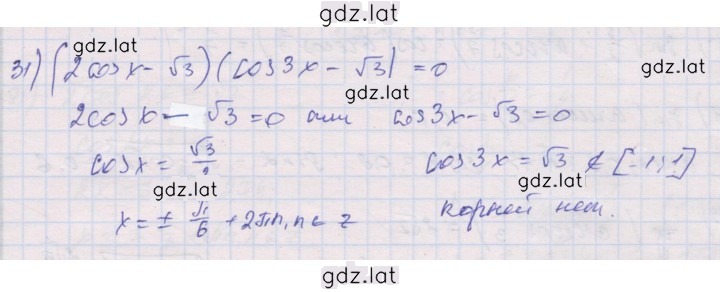 gdz.lat
31) (2cosx - √3)(cos3x - √3) = 0
gdz.lat
gdz.lat
gdz.lat
2cosx - √3 = 0 или cos3x - √3 = 0
cosx = √3/2 cos3x = √3 ∉ [-1;1]
gdz.lat
gdz.lat
x = ± π/6 + 2πn, n ∈ z корней нет.
gdz.lat